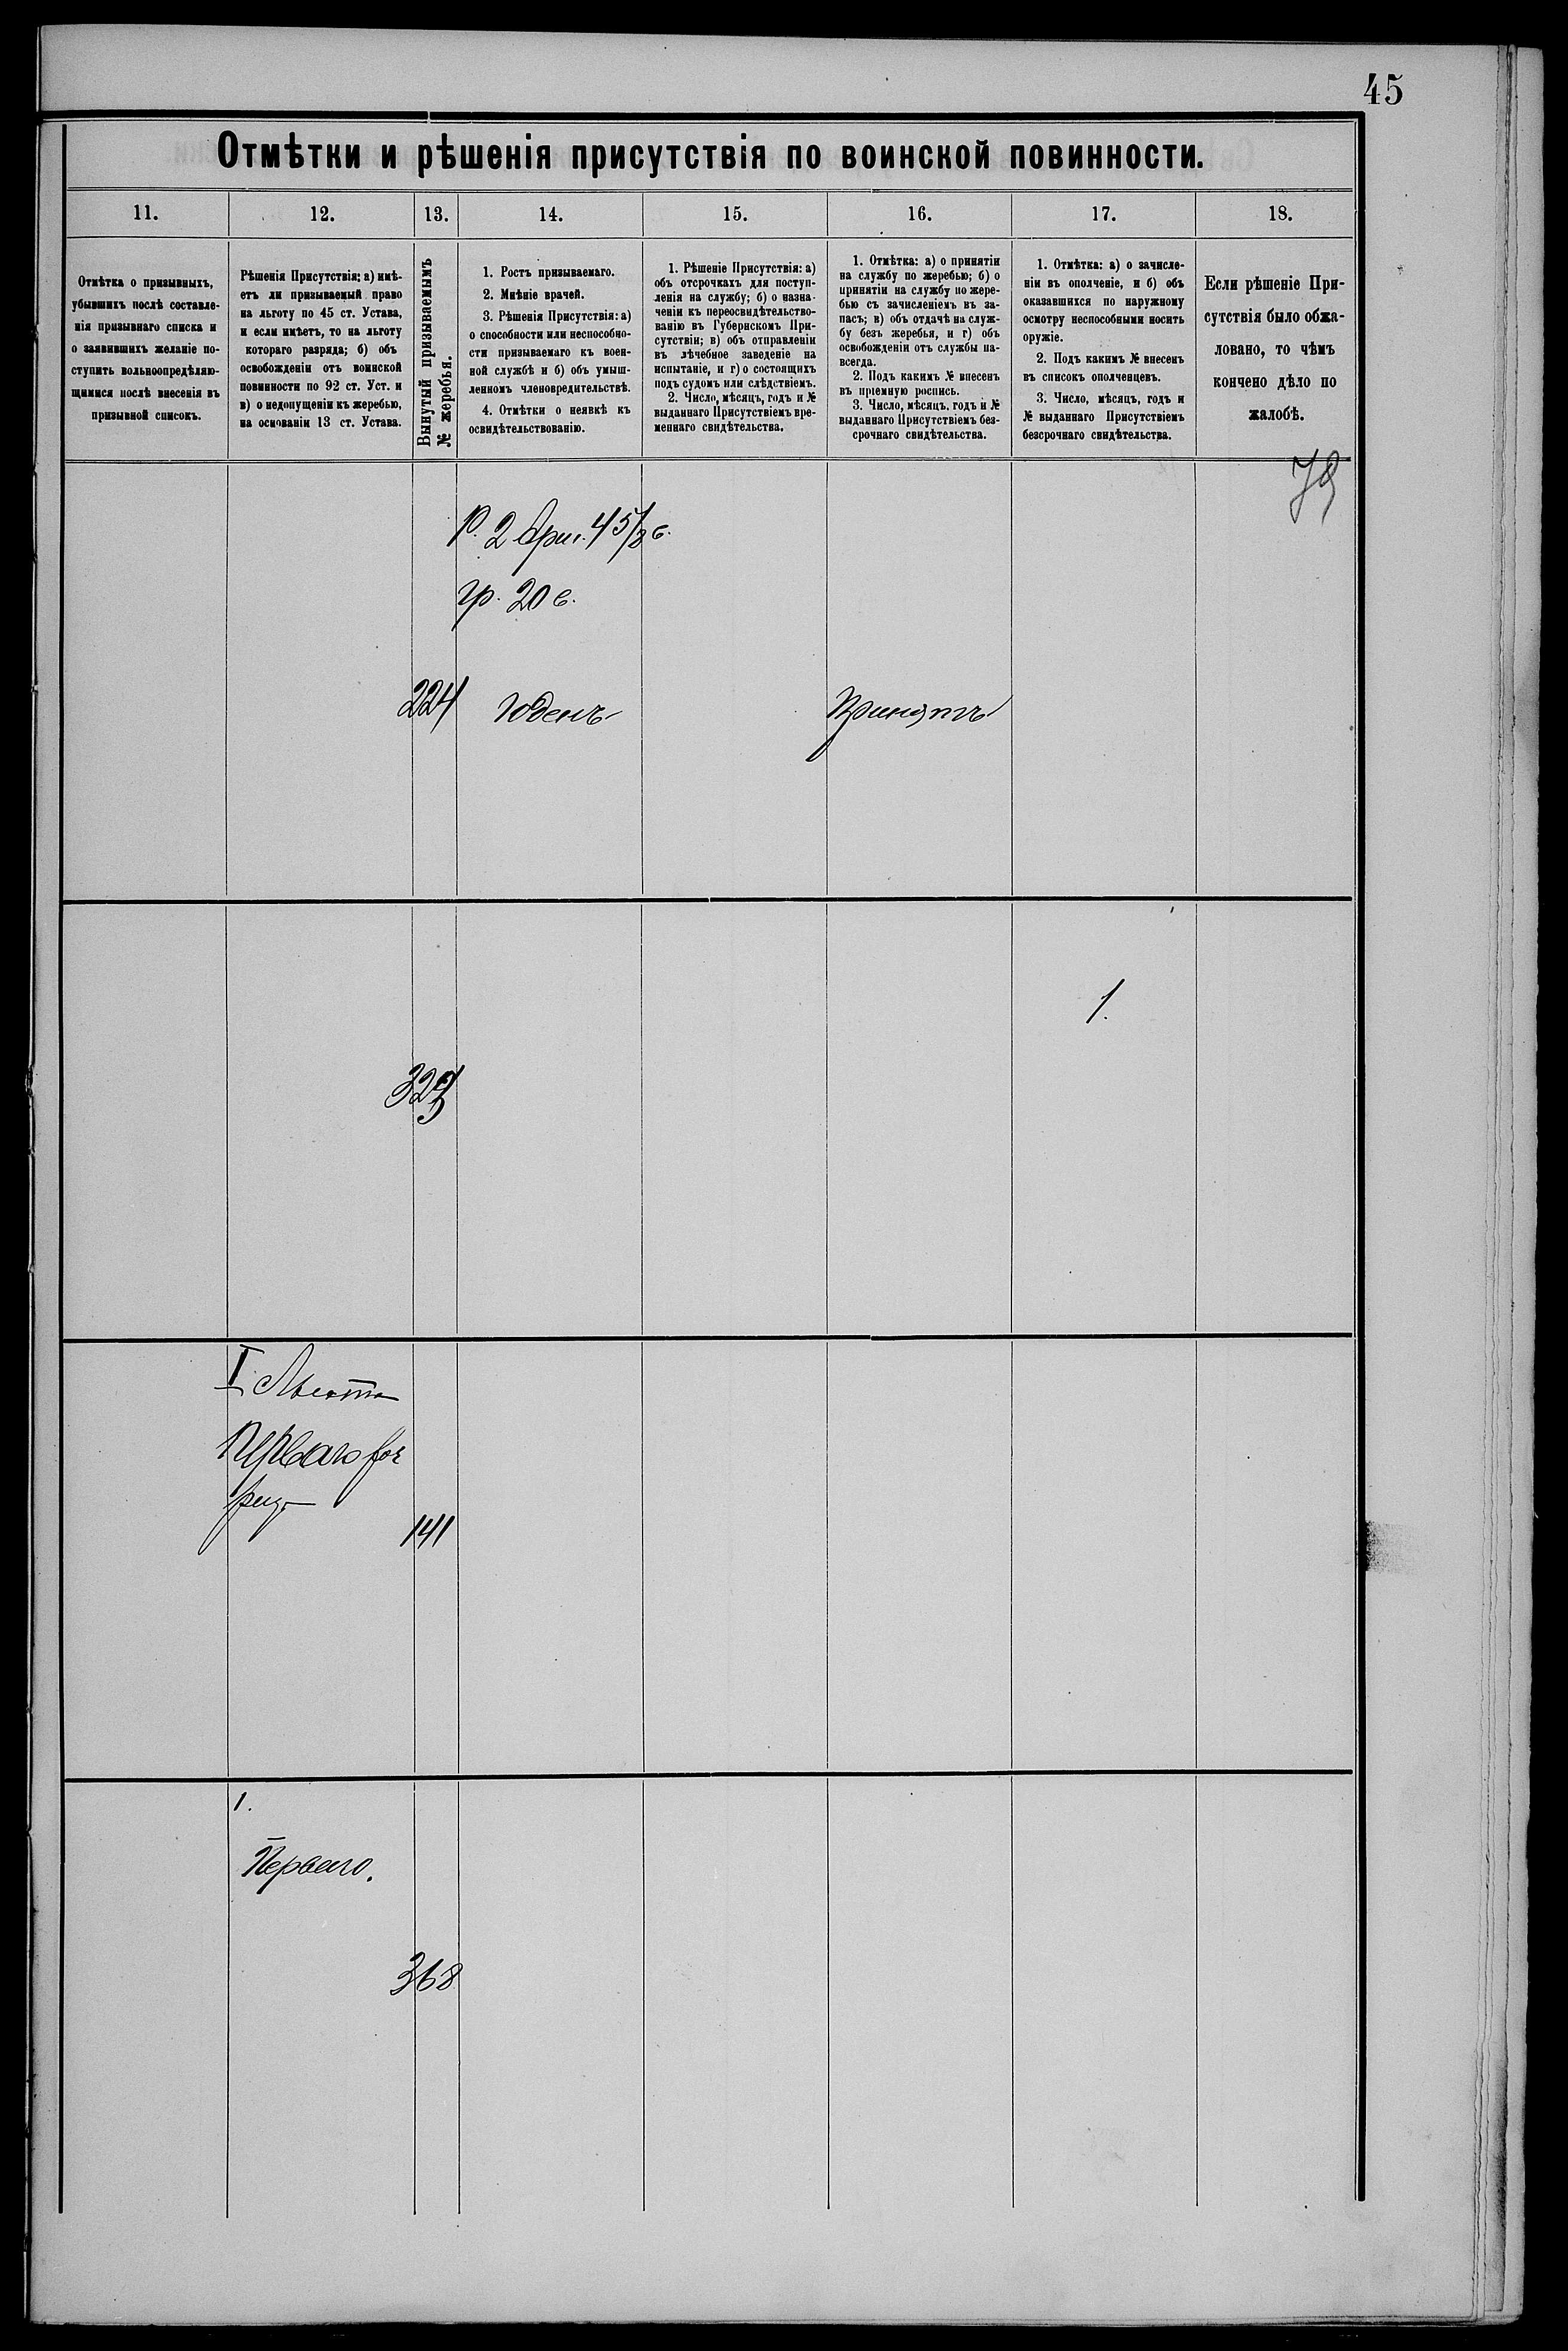 45
Отмѣтки и рѣшенія присутствія по воинской повинности.
11. 12. 13. 14. 15. 16. 17. 18.
Отмѣтка о призывныхъ,
убывшихъ послѣ составле-
нія призывнаго списка и
о заявившихъ желаніе по-
ступить вольноопредѣляю-
щимися послѣ внесенія въ
призывной списокъ.
Рѣшенія Присутствія: а) имѣ-
етъ ли призываемый право
на льготу по 45 ст. Устава,
и если имѣетъ, то на льготу
котораго разряда; б) объ
освобожденіи отъ воинской
повинности по 92 ст. Уст. и
в) о недопущеніи къ жеребью,
на основаніи 13 ст. Устава.
Вынутый призываемымъ
№ жеребья.
1. Ростъ призываемаго.
2. Мнѣніе врачей.
3. Рѣшенія Присутствія: а)
о способности или неспособно-
сти призываемаго къ воен-
ной службѣ и б) объ умыш-
ленномъ членовредительствѣ.
4. Отмѣтки о неявкѣ къ
освидѣтельствованію.
1. Рѣшеніе Присутствія: а)
объ отсрочкахъ для поступ-
ленія на службу; б) о назна-
ченіи къ переосвидѣтельство-
ванію въ Губернскомъ При-
сутствіи; в) объ отправленіи
въ лѣчебное заведеніе на
испытаніе, и г) о состоящихъ
подъ судомъ или слѣдствіемъ.
2. Число, мѣсяцъ, годъ и №
выданнаго Присутствіемъ вре-
меннаго свидѣтельства.
1. Отмѣтка: а) о принятіи
на службу по жеребью; б) о
принятіи на службу по жере-
бью съ зачисленіемъ въ за-
пасъ; в) объ отдачѣ на служ-
бу безъ жеребья, и г) объ
освобожденіи отъ службы на-
всегда.
2. Подъ какимъ № внесенъ
въ пріемную роспись.
3. Число, мѣсяцъ, годъ и №
выданнаго Присутствіемъ без-
срочнаго свидѣтельства.
1. Отмѣтка: а) о зачисле-
ніи въ ополченіе, и б) объ
оказавшихся по наружному
осмотру неспособными носить
оружіе.
2. Подъ какимъ № внесенъ
въ списокъ ополченцевъ.
3. Число, мѣсяцъ, годъ и
№ выданнаго Присутствіемъ
безсрочнаго свидѣтельства.
Если рѣшеніе При-
сутствія было обжа-
ловано, то чѣмъ
кончено дѣло по
жалобѣ.
Р. 2 арш. 4 5/8 в.
гр. 20 в.
224 Годенъ Принятъ
1.
I
141
1.
Перваго.
368